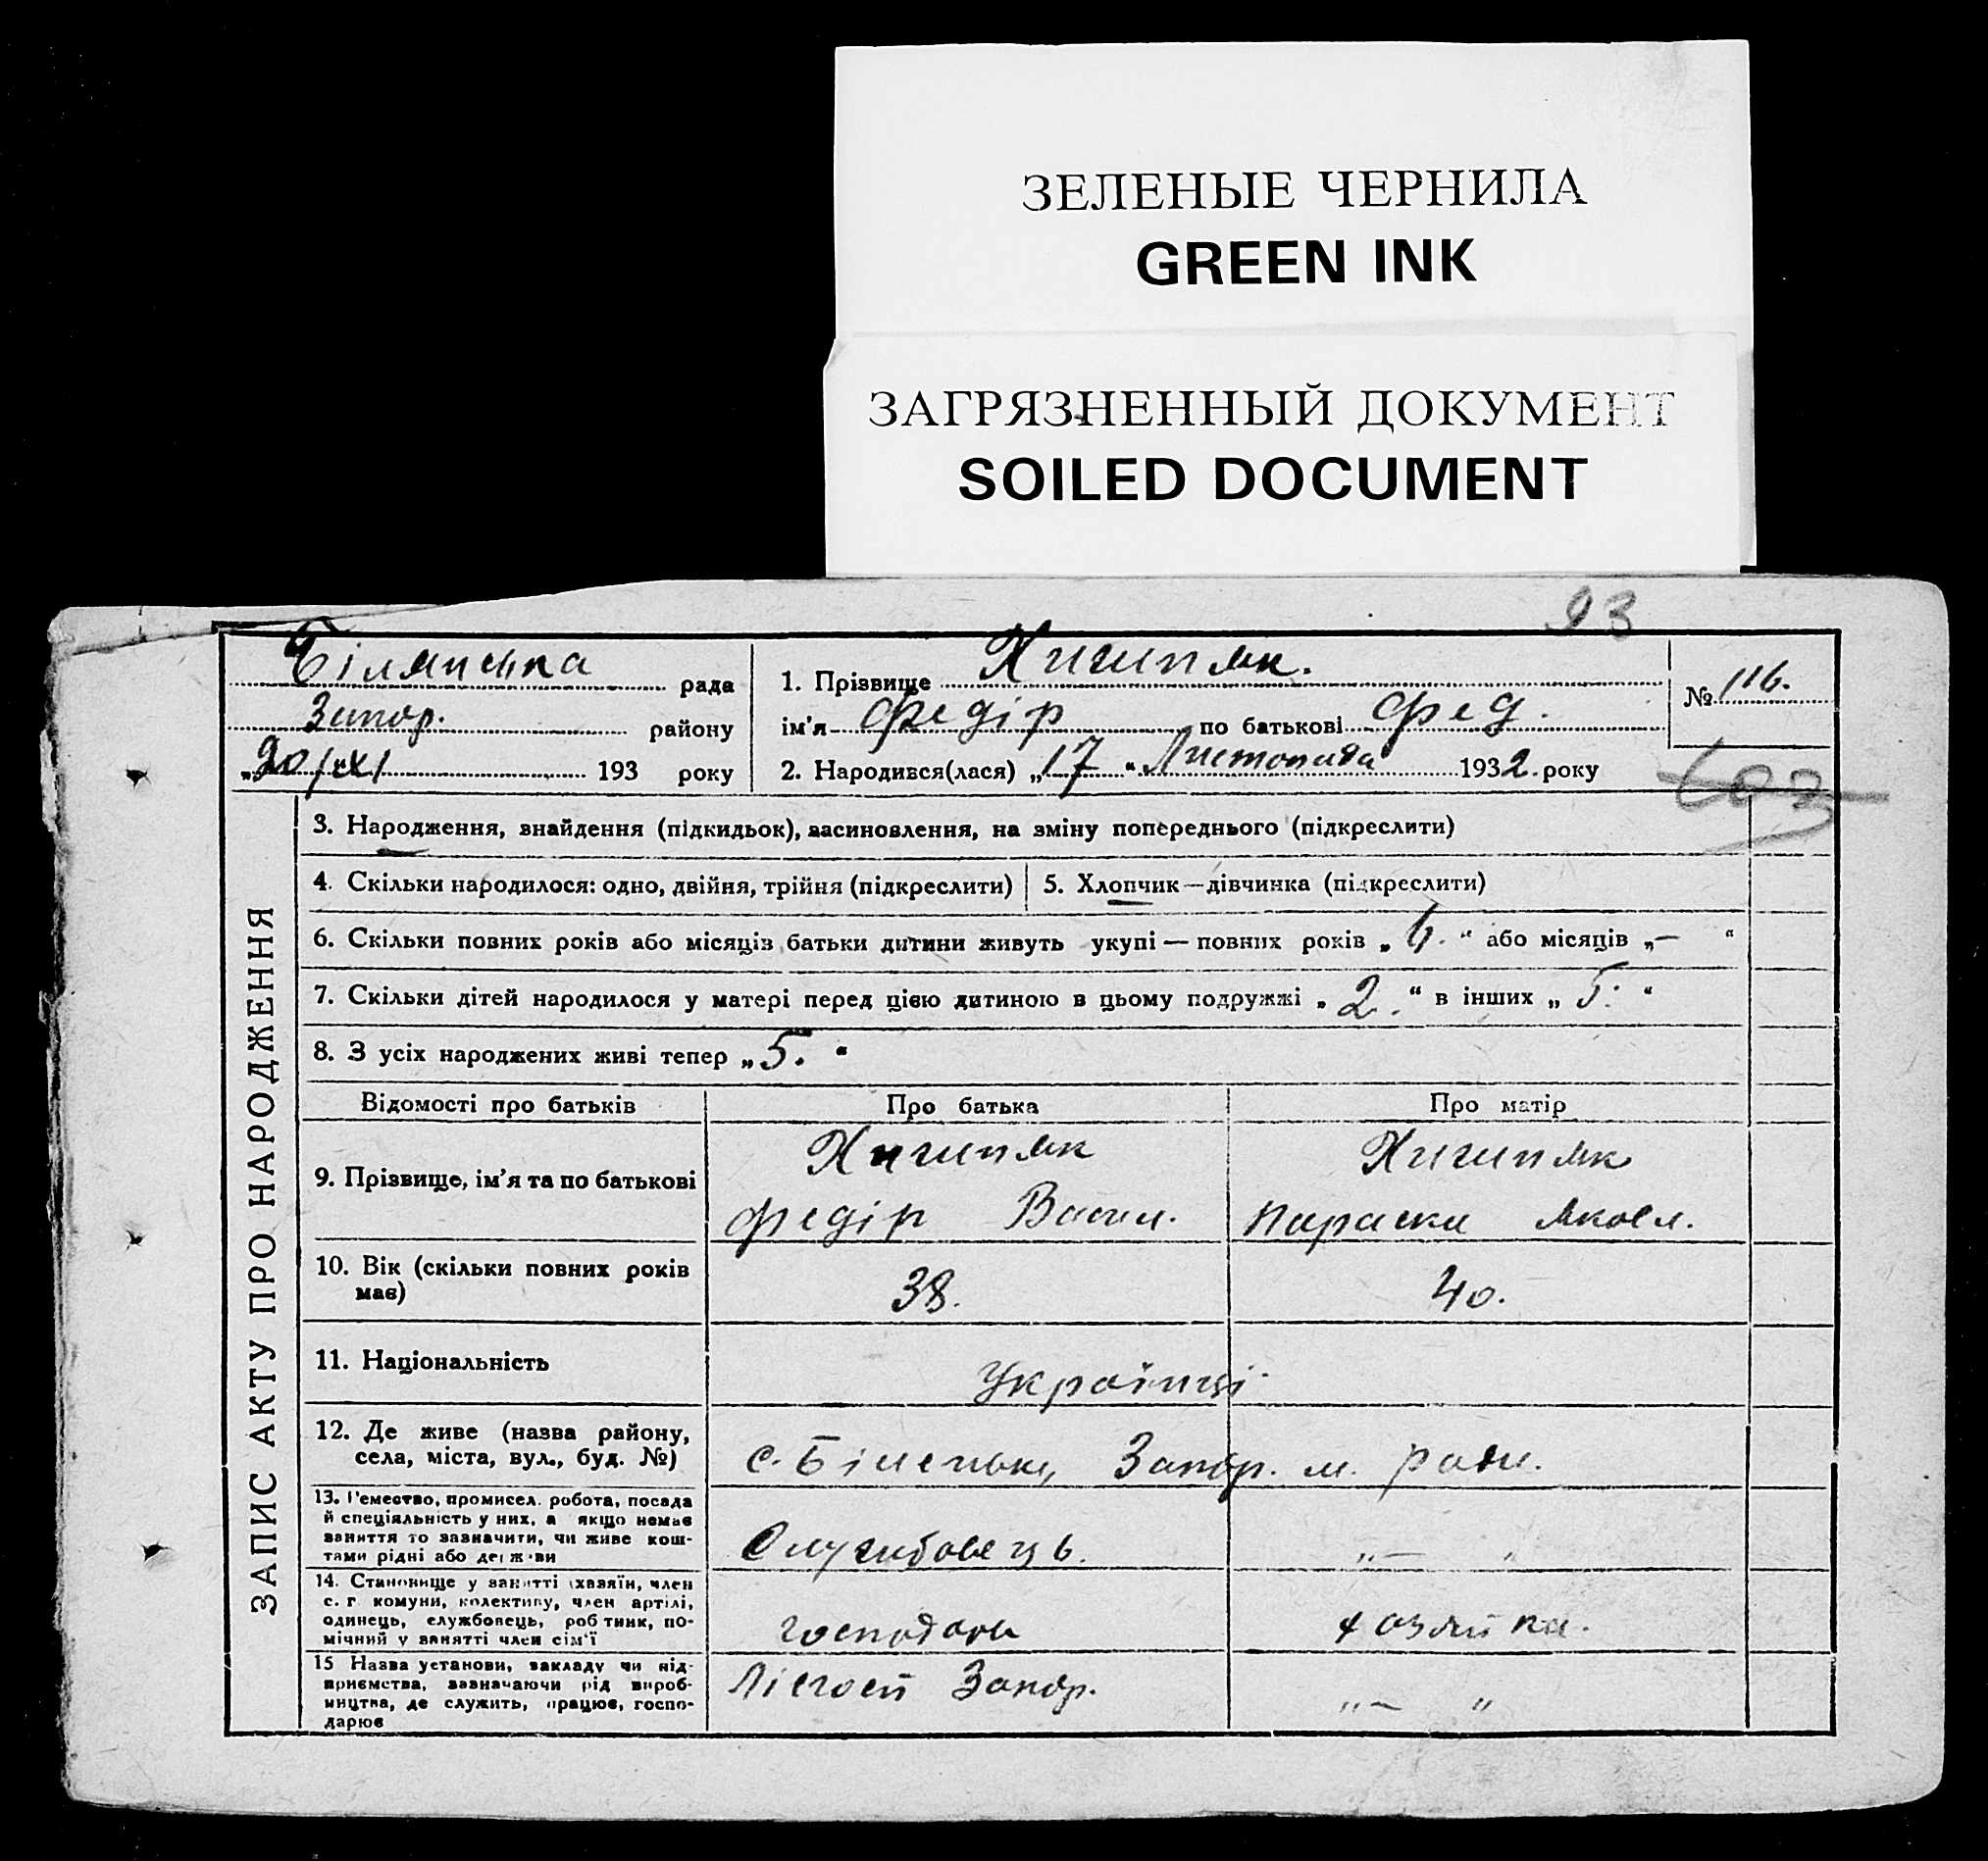 ЗЕЛЕНЫЕ ЧЕРНИЛА
GREEN INK
ЗАГРЯЗНЕННЫЙ ДОКУМЕНТ
SOILED DOCUMENT
93
Білянська рада
Запор. району
„20/XI 193 року
1. Прізвище Хигиняк.
ім'я Федір по батькові Фед.
2. Народився(лася) „17“ Листопада 1932. року
№ 116.
ЗАПИС АКТУ ПРО НАРОДЖЕННЯ
3. Народження, знайдення (підкидьок), засиновлення, на зміну попереднього (підкреслити)
4. Скільки народилося: одно, двійня, трійня (підкреслити)
5. Хлопчик—дівчинка (підкреслити)
6. Скільки повних років або місяців батьки дитини живуть укупі — повних років „ 4. “ або місяців „— “
7. Скільки дітей народилося у матері перед цією дитиною в цьому подружжі „ 2. “ в інших „ 5. “
8. З усіх народжених живі тепер „5. “
Відомості про батьків
Про батька
Про матір
9. Прізвище, ім'я та по батькові
Хигиняк
Федір Васил.
Хигиняк
Параска Яковл.
10. Вік (скільки повних років
має)
38.
40.
11. Національність
Українці
12. Де живе (назва району,
села, міста, вул., буд. №)
с. Біленьке, Запор. м. ради.
13. Ремество, промисел. робота, посада
й спеціяльність у них, а якщо немає
заняття то зазначити, чи живе кош-
тами рідні або держави
Службовець.
„— „
14. Становище у занятті (хазяїн, член
с. г. комуни, колективу, член артілі,
одинець, службовець, робітник, по-
мічний у занятті член сім'ї
господарь
хозяйка.
15 Назва установи, закладу чи під-
приємства, зазначаючи рід вироб-
ництва, де служить, працює, госпо-
дарює
Лісгосп Запор.
„— „